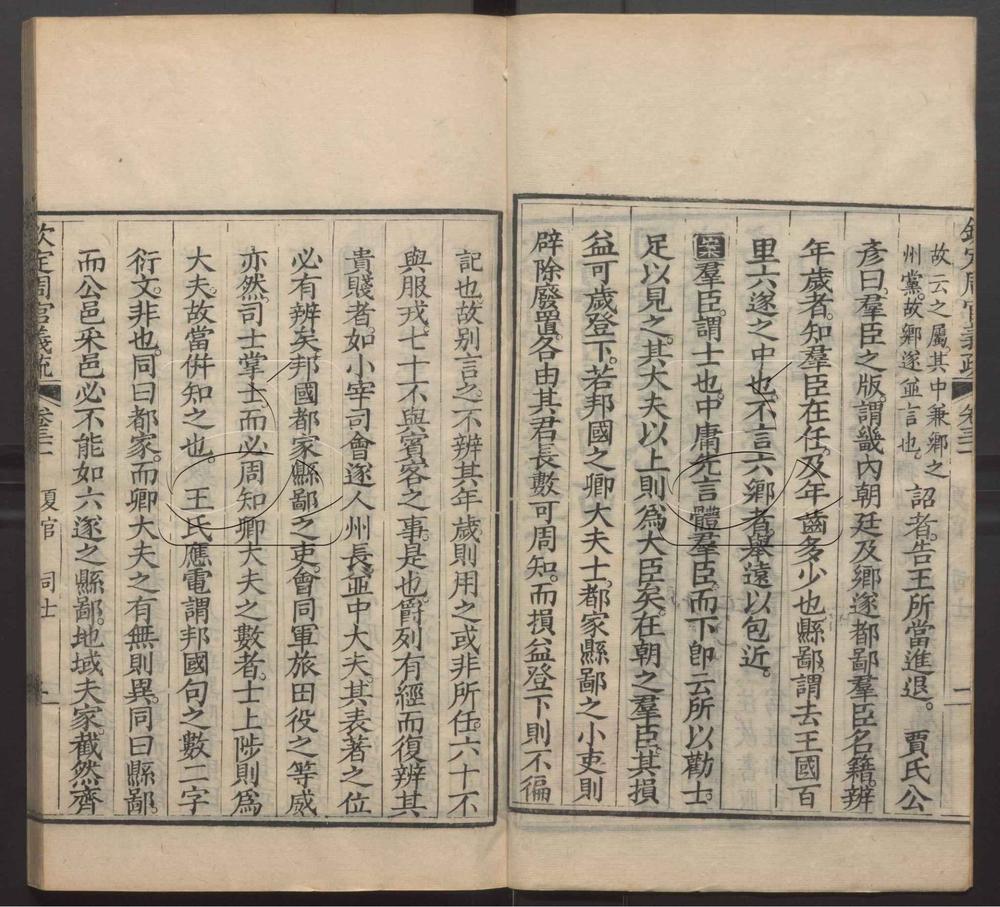 欽定周官義疏 卷三十一
故云之屬其中兼鄉之
州黨故鄉遂並言也。
詔者。告王所當進退。 賈氏公
彥曰。羣臣之版。謂畿內朝廷及鄉遂都鄙羣臣名籍。辨
年歲者。知羣臣在任。及年齒多少也。縣鄙謂去王國百
里六遂之中也。不言六鄉者。舉遠以包近。
案羣臣。謂士也。中庸先言體羣臣。而下卽云所以勸士。
足以見之。其大夫以上則爲大臣矣。在朝之羣臣。其損
益可歲登下。若邦國之卿大夫士。都家縣鄙之小吏則
辟除廢置。各由其君長數可周知。而損益登下則不徧
記也。故別言之。不辨其年歲則用之或非所任。六十不
與服戎。七十不與賓客之事。是也。爵列有經而復辨其
貴賤者。如小宰司會遂人州長。並中大夫。其表著之位
必有辨矣。邦國都家縣鄙之吏。會同軍旅田役之等威
亦然。司士掌士而必周知卿大夫之數者。士上陟則爲
大夫。故當併知之也。 王氏應電謂邦國句之數二字
衍文。非也。同曰都家。而卿大夫之有無則異。同曰縣鄙。
而公邑采邑必不能如六遂之縣鄙。地域夫家。截然齊
欽定周官義疏 夏官 司士